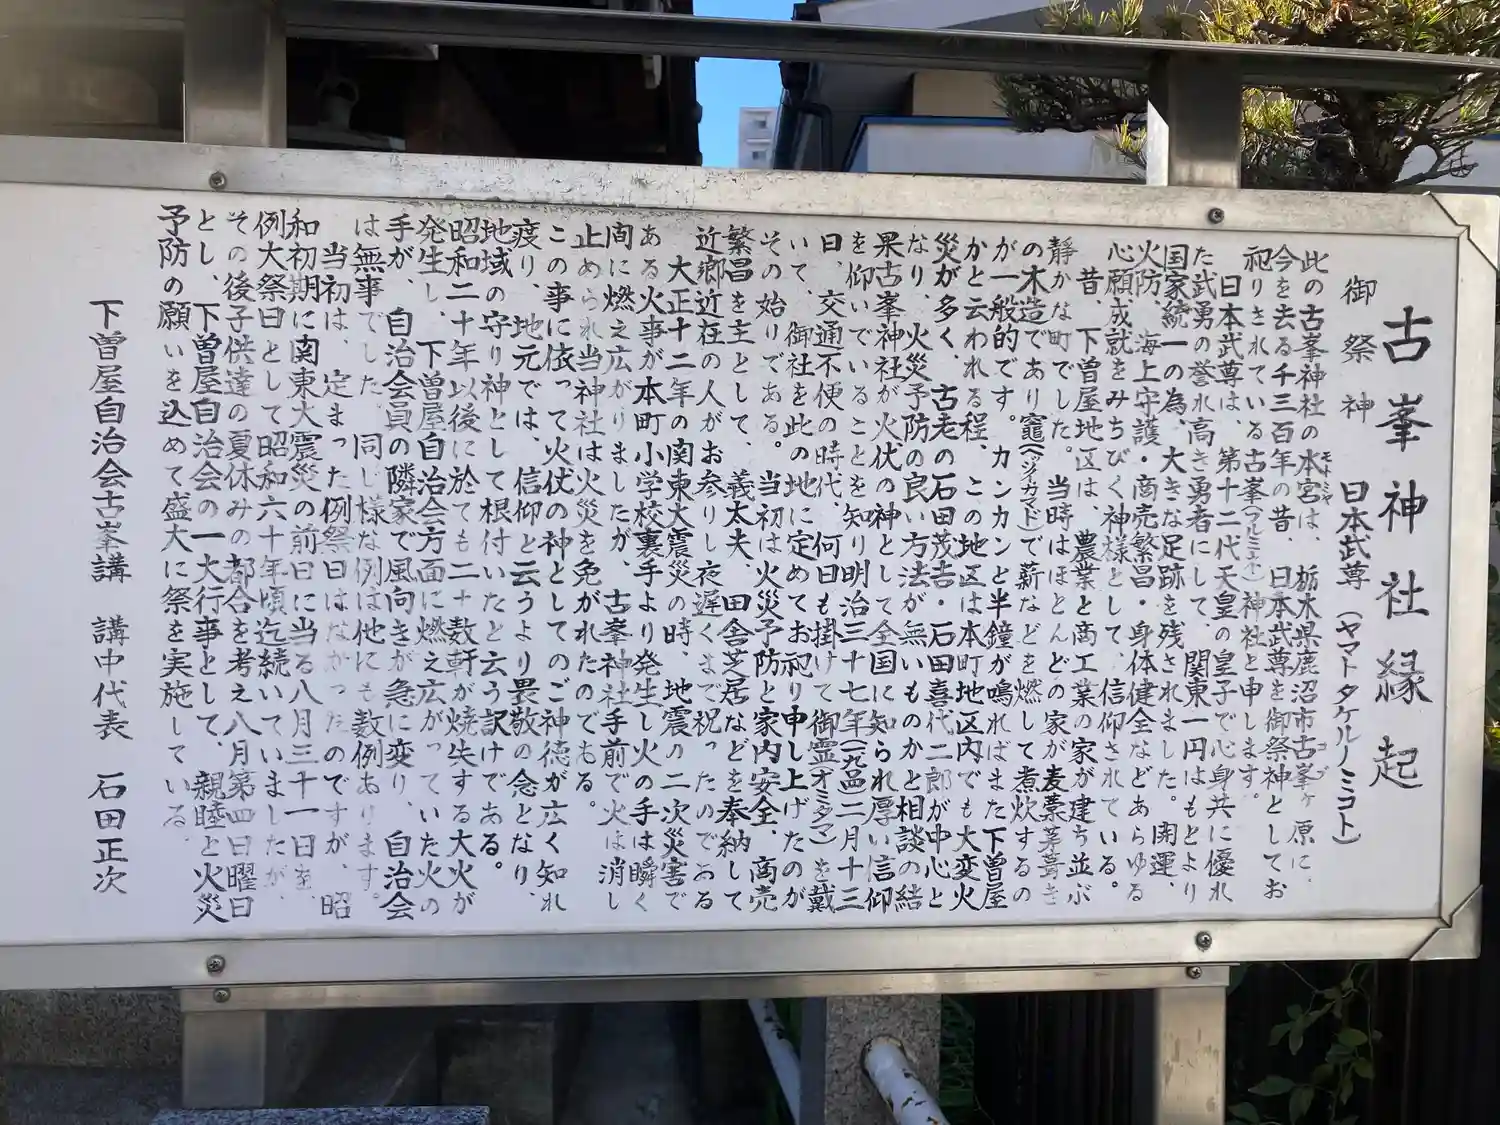 古峯神社縁起
御祭神 日本武尊(ヤマトタケルノミコト)
此の古峯神社の本宮は、栃木県鹿沼市古峯ヶ原に、
モトミヤ
コブ
今を去る千三百年の昔、日本武尊を御祭神としてお
祀りされている古峯(フルミネ)神社と申します。
日本武尊は、第十二代天皇の皇子で心身共に優れ
た武勇の誉れ高き勇者にして、関東一円はもとより
国家統一の為、大きな足跡を残されました。開運、
火防、海上守護・商売繁昌・身体健全などあらゆる
心願成就をみちびく神様として、信仰されている。
昔、下曽屋地区は、農業と商工業の家が建ち並ぶ
静かな町でした。当時はほとんどの家が麦藁茅葺き
の木造であり竈(ヘッツイカマド)で薪などを燃して煮炊するの
が一般的です。カンカンと半鐘が鳴ればまた下曽屋
かと云われる程、この地区は本町地区内でも大変火
災が多く、古老の石田茂吉・石田喜代二郎が中心と
なり、火災予防の良い方法が無いものかと相談の結
果古峯神社が火伏の神として全国に知られ厚い信仰
を仰いでいることを知り明治三十七年(一九〇四)二月十三
日、交通不便の時代、何日も掛けて御霊(オミタマ)を戴
いて、御社を此の地に定めてお祀り申し上げたのが
その始りである。当初は火災予防と家内安全、商売
繁昌を主として、義太夫、田舎芝居などを奉納して
近郷近在の人がお参りし夜遅くまで祝ったのである
大正十二年の関東大震災の時、地震の二次災害で
ある火事が本町小学校裏手より発生し火の手は瞬く
間に燃え広がりましたが、古峯神社手前で火は消し
止められ当神社は火災を免がれたのでもる。
この事に依って火伏の神としてのご神徳が広く知れ
渡り、地元では、信仰と云うより畏敬の念となり、
地域の守り神として根付いたと云う訳けである。
昭和二十年以後に於ても二十数軒が焼失する大火が
発生し、下曽屋自治会方面に燃え広がっていた火の
手が、自治会員の隣家で風向きが急に変り、自治会
は無事でした。同じ様な例は他にも数例あります。
当初は、定まった例祭日はなかったのですが、昭
和初期に関東大震災の前日に当る八月三十一日を、
例大祭日として昭和六十年頃迄続いていましたが、
その後子供達の夏休みの都合を考え八月第四日曜日
とし、下曽屋自治会の一大行事として、親睦と火災
予防の願いを込めて盛大に祭を実施している。
下曽屋自治会古峯講 講中代表 石田正次